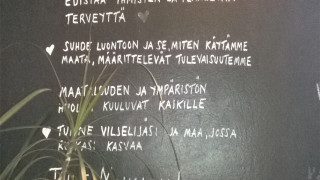 EDISTÄÄ IHMISTEN
TERVEYTTÄ
SUHDE LUONTOON JA SE, MITEN KÄYTÄMME
MAATA, MÄÄRITTELEVÄT TULEVAISUUTEMME
MAATALOUDEN JA YMPÄRISTÖN
KUULUVAT KAIKILLE
VILJELIJÄSI JA MAA, JOSSA
KASVAA